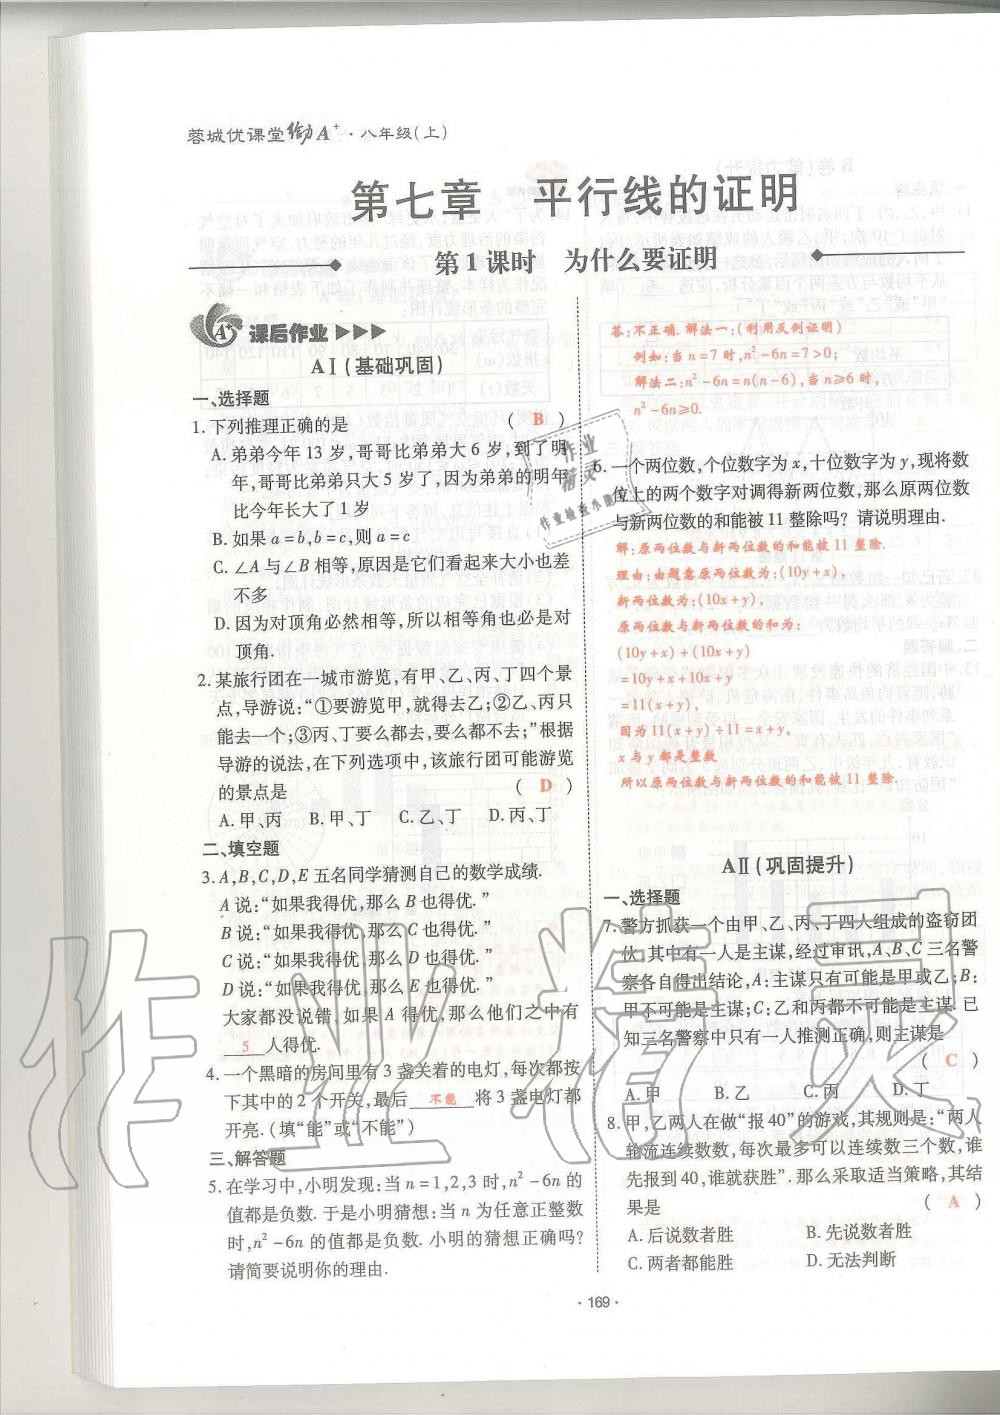 蓉城优课堂给力A⁺·八年级(上)
第七章 平行线的证明
第1课时 为什么要证明
A⁺ 课后作业
AⅠ(基础巩固)
一、选择题
1.下列推理正确的是 ( B )
A.弟弟今年13岁,哥哥比弟弟大6岁,到了明
年,哥哥比弟弟只大5岁了,因为弟弟的明年
比今年长大了1岁
B.如果a=b,b=c,则a=c
C.∠A与∠B相等,原因是它们看起来大小也差
不多
D.因为对顶角必然相等,所以相等角也必是对
顶角.
2.某旅行团在一城市游览,有甲、乙、丙、丁四个景
点,导游说:“①要游览甲,就得去乙;②乙、丙只
能去一个;③丙、丁要么都去,要么都不去;”根据
导游的说法,在下列选项中,该旅行团可能游览
的景点是 ( D )
A.甲、丙 B.甲、丁 C.乙、丁 D.丙、丁
二、填空题
3.A,B,C,D,E五名同学猜测自己的数学成绩.
A说:“如果我得优,那么B也得优.”
B说:“如果我得优,那么C也得优.”
C说:“如果我得优,那么D也得优.”
D说:“如果我得优,那么E也得优.”
大家都没说错,如果A得优,那么他们之中有
5 人得优.
4.一个黑暗的房间里有3盏关着的电灯,每次都按
下其中的2个开关,最后 不能 将3盏电灯都
开亮.(填“能”或“不能”)
三、解答题
5.在学习中,小明发现:当n=1,2,3时,n²-6n的
值都是负数.于是小明猜想:当n为任意正整数
时,n²-6n的值都是负数.小明的猜想正确吗?
请简要说明你的理由.
答:不正确.解法一:(利用反例证明)
例如:当n=7时,n²-6n=7>0;
解法二:n²-6n=n(n-6),当n≥6时,
n²-6n≥0.
6.一个两位数,个位数字为x,十位数字为y,现将数
位上的两个数字对调得新两位数,那么原两位数
与新两位数的和能被11整除吗?请说明理由.
解:原两位数与新两位数的和能被11整除.
理由:由题意原两位数为:(10y+x),
新两位数为:(10x+y),
原两位数与新两位数的和为:
(10y+x)+(10x+y)
=10y+x+10x+y
=11(x+y),
因为11(x+y)÷11=x+y,
x与y都是整数
所以原两位数与新两位数的和能被11整除.
AⅡ(巩固提升)
一、选择题
7.警方抓获一个由甲、乙、丙、丁四人组成的盗窃团
伙,其中有一人是主谋,经过审讯,A、B、C三名警
察各自得出结论,A:主谋只有可能是甲或乙;B:
甲不可能是主谋;C:乙和丙都不可能是主谋.已
知三名警察中只有一人推测正确,则主谋是
( C )
A.甲 B.乙 C.丙 D.丁
8.甲,乙两人在做“报40”的游戏,其规则是:“两人
轮流连续数数,每次最多可以连续数三个数,谁
先报到40,谁就获胜”.那么采取适当策略,其结
果是 ( A )
A.后说数者胜 B.先说数者胜
C.两者都能胜 D.无法判断
·169·
作业精灵
作业检查小助手
作业精灵